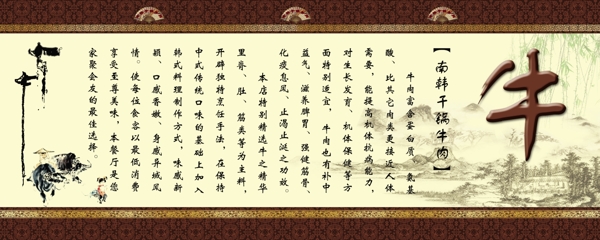 牛
【南韩干锅牛肉】
牛肉富含蛋白质、氨基
酸、比其它肉类更接近人体
需要，能提高机体抗病能力，
对生长发育、机体保健等方
面特别适宜，牛肉也有补中
益气、滋养脾胃、强健筋骨、
化痰息风、止渴止涎之功效。
本店特别精选牛之精华
里脊、肚、筋类等为主料，
开辟独特烹饪手法，在保持
中式传统口味的基础上加入
韩式料理制作方式，味感新
颖、口感香嫩、身感异域风
情。使每位食客以最低消费
享受至尊美味，本餐厅是您
家聚会友的最佳选择